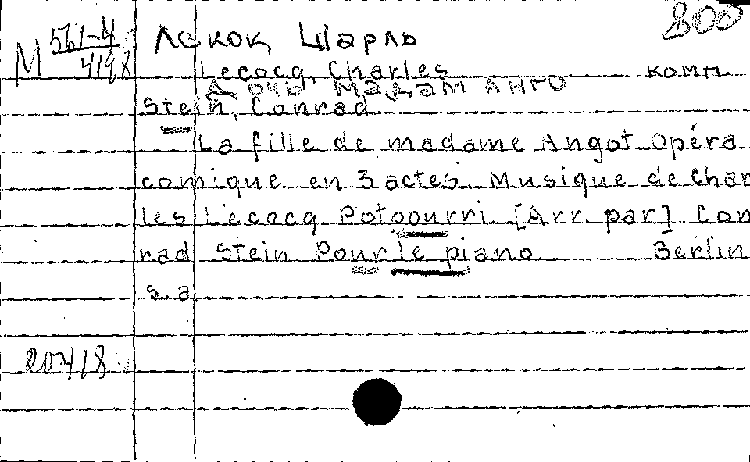 800
М 561-4
Лекок, Шарль
Lecocq, Charles комп
Дочь мадам Анго
Stein, Conrad
La fille de madame Angot Opéra
comique en 3 actes. Musique de Char
les Lecocq Potpourri [Arr. par] Con
rad Stein Pour le piano Berlin
s. a.